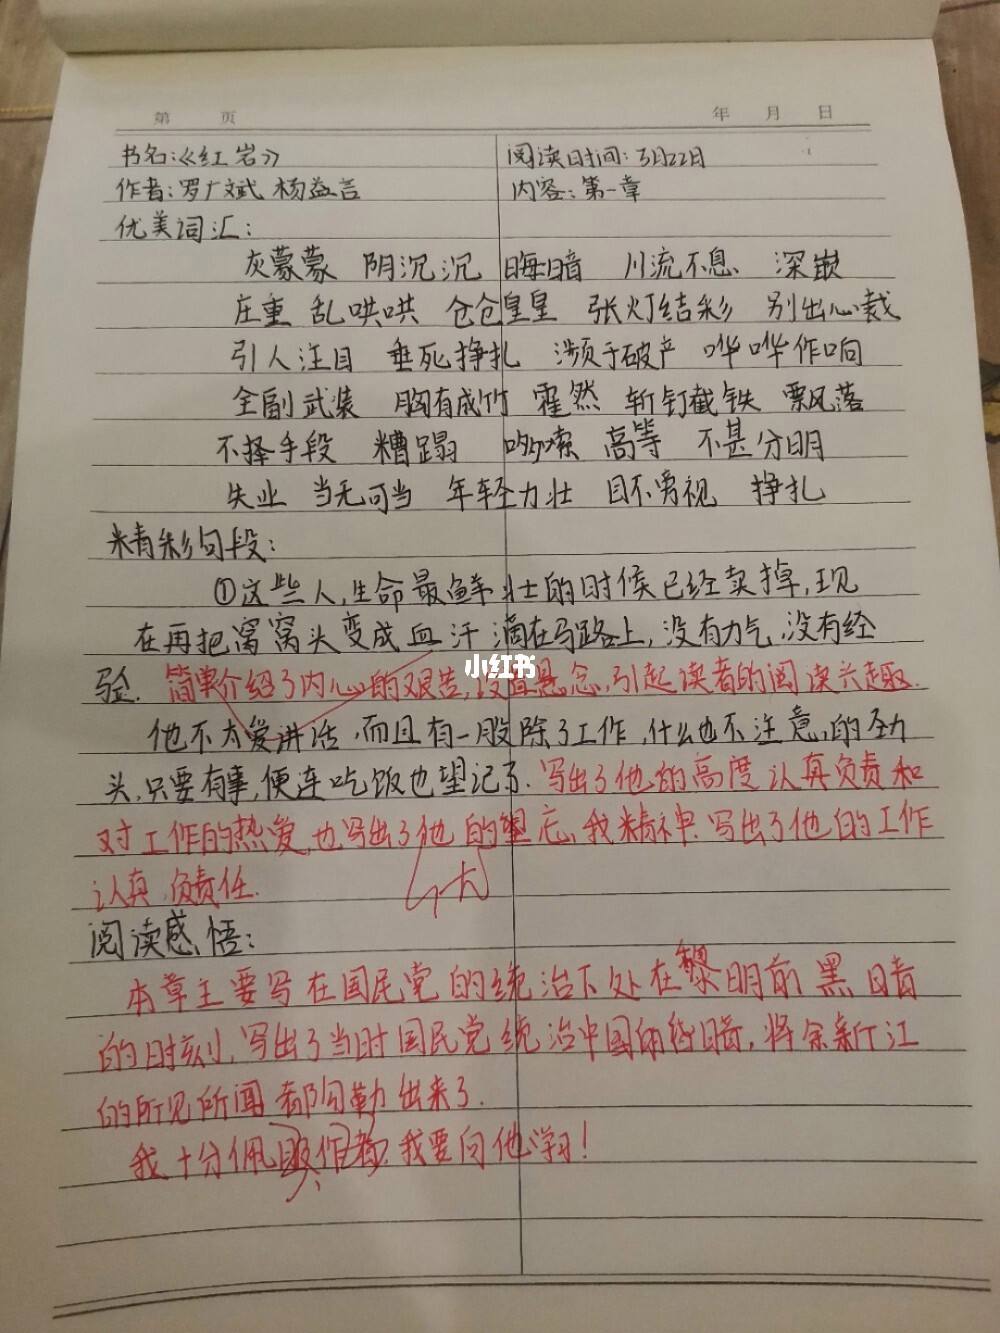 第 页 年 月 日
书名:《红岩》 阅读时间:3月22日
作者:罗广斌 杨益言 内容:第一章
优美词汇:
灰蒙蒙 阴沉沉 晦暗 川流不息 深嵌
庄重 乱哄哄 仓仓皇皇 张灯结彩 别出心裁
引人注目 垂死挣扎 濒于破产 哗哗作响
全副武装 胸有成竹 霍然 斩钉截铁 飘落
不择手段 糟蹋 哆嗦 高等 不甚分明
失业 当无可当 年轻力壮 目不旁视 挣扎
精彩句段:
①这些人,生命最鲜壮的时候已经卖掉,现
在再把窝窝头变成血汗滴在马路上,没有力气,没有经
验.简单介绍了内心的艰苦,设置悬念,引起读者的阅读兴趣.
小红书
他不太爱讲话,而且有一股除了工作,什么也不注意,的劲
头,只要有事,便连吃饭也望记了.写出了他的高度认真负责和
对工作的热爱,也写出了他的忘我精神.写出了他的工作
认真,负责任.
阅读感悟:
本章主要写在国民党的统治下处在黎明前黑暗
的时刻,写出了当时国民党统治中国的昏暗,将余新江
的所见所闻都勾勒出来了.
我十分佩服作者,我要向他学习!